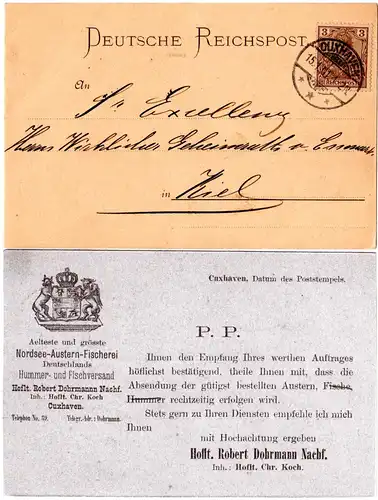 DEUTSCHE REICHSPOST
3
CUXHAVEN
An
Sr Excellenz
Herrn Wirklicher Geheimrath v. Esmarch
in Kiel
Cuxhaven, Datum des Poststempels.
Aelteste und grösste
Nordsee-Austern-Fischerei
Deutschlands
Hummer- und Fischversand
Hoflt. Robert Dohrmann Nachf.
Inh.: Hoflt. Chr. Koch
Cuxhaven.
Telephon No. 39. Telegr.-Adr.: Dohrmann.
P. P.
Ihnen den Empfang Ihres werthen Auftrages
höflichst bestätigend, theile Ihnen mit, dass die
Absendung der gütigst bestellten Austern, Fische,
Hummer rechtzeitig erfolgen wird.
Stets gern zu Ihren Diensten empfehle ich mich
Ihnen
mit Hochachtung ergeben
Hoflt. Robert Dohrmann Nachf.
Inh.: Hoflt. Chr. Koch.